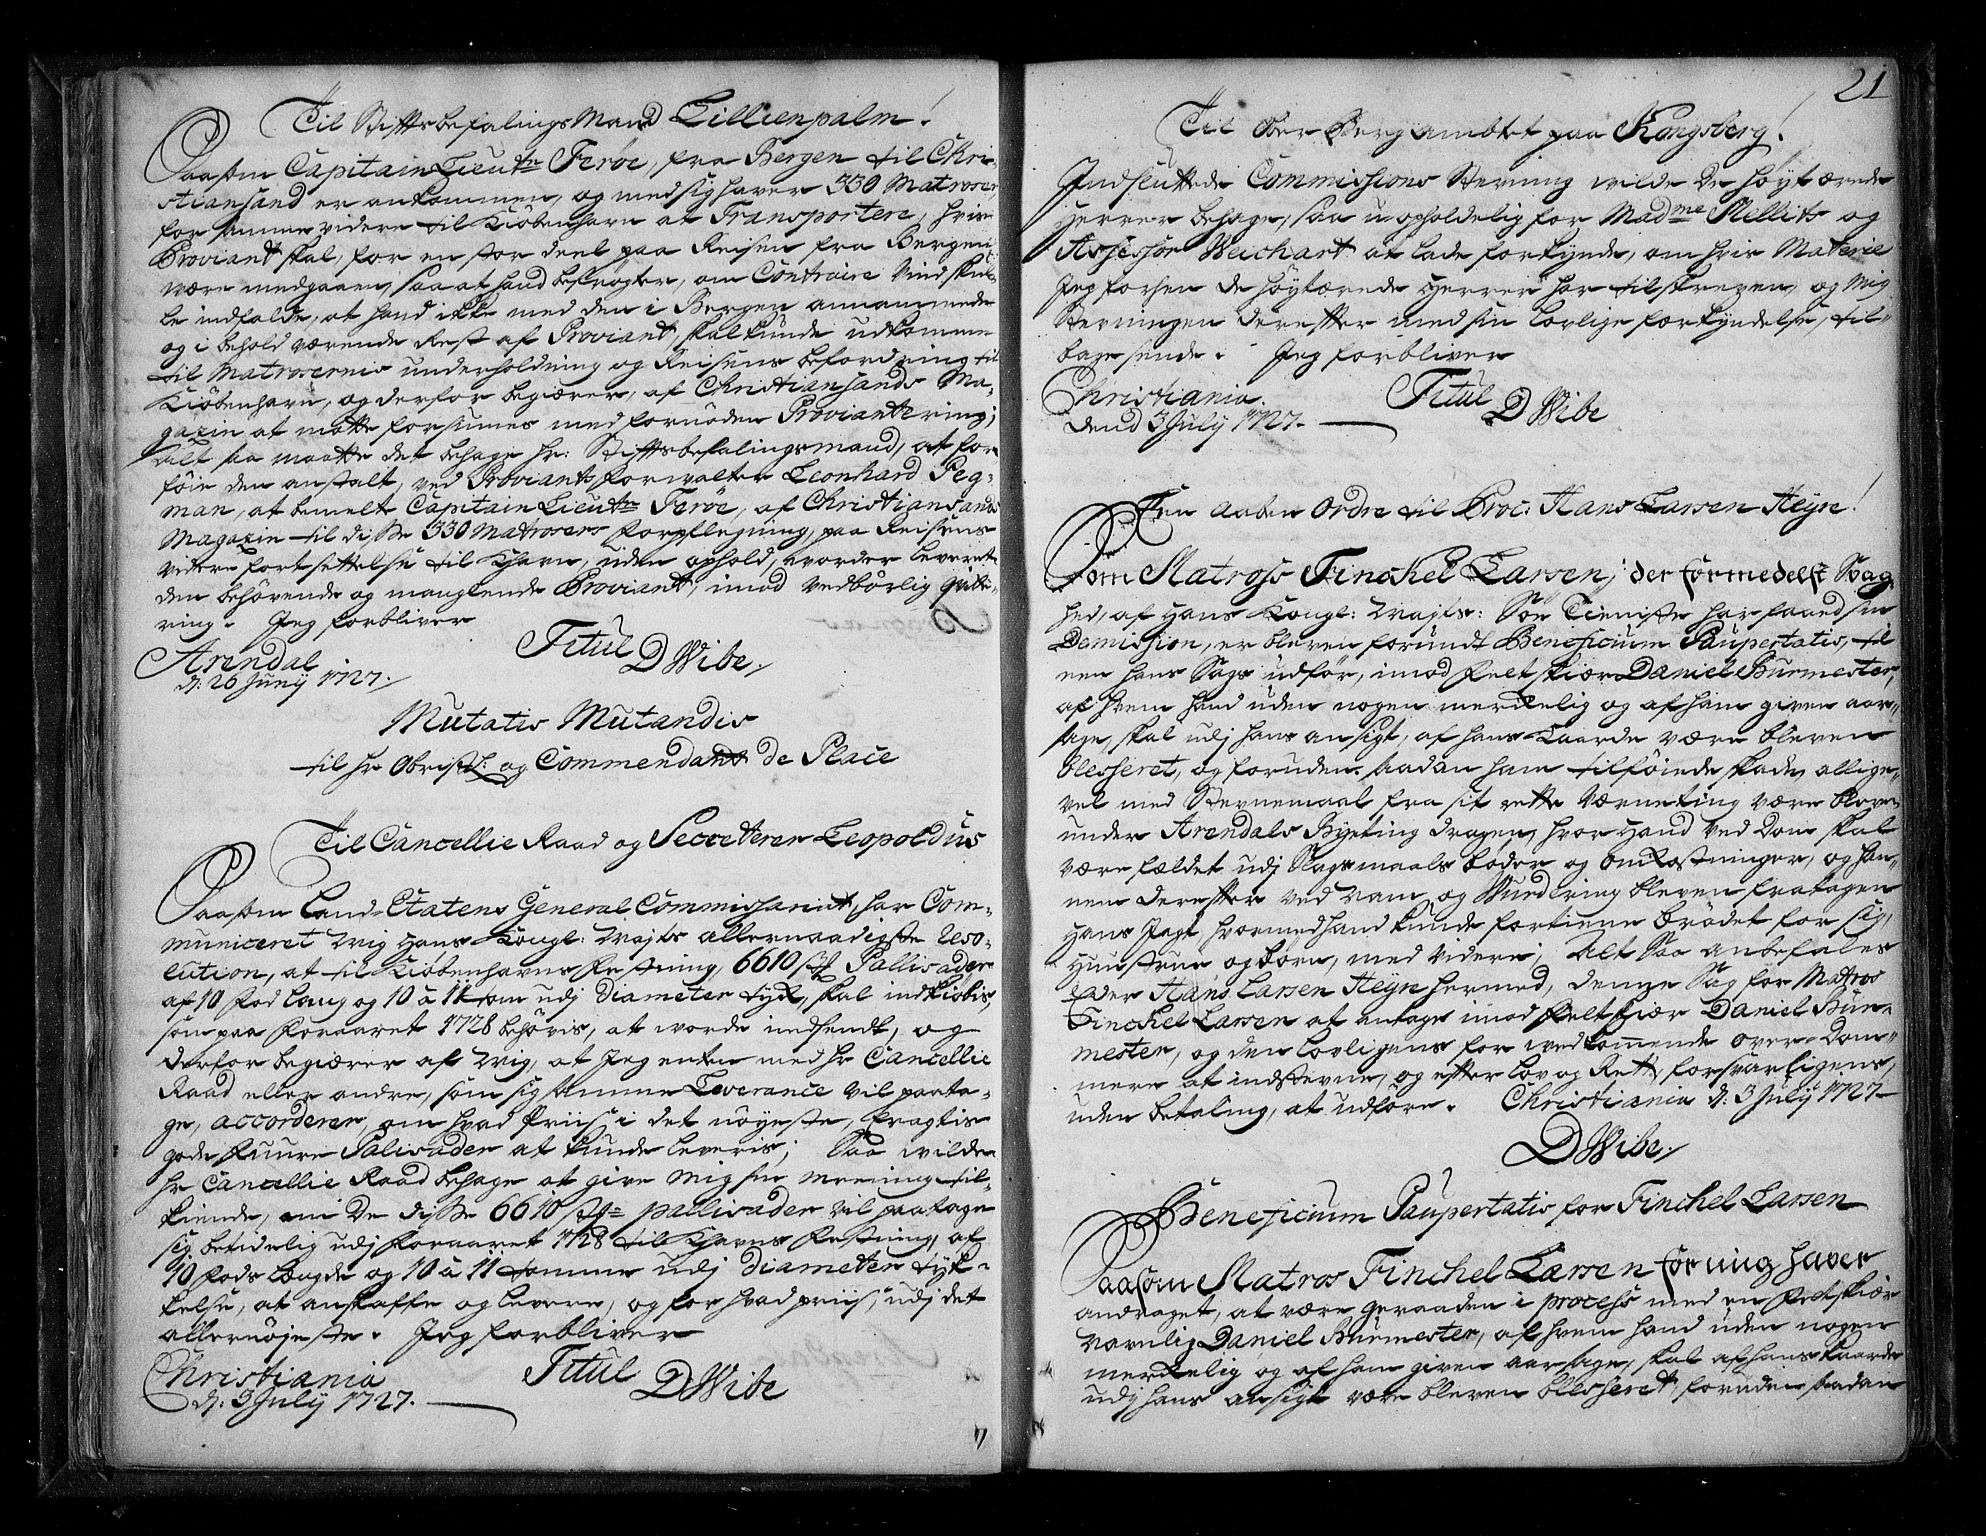 Til Stiftsbefalings Mand Lillienpalm!
Saasom Capitain Lieutn Ferøe, fra Bergen til Chri-
stiansand er ankommen, og med sig haver 330 Matroser,
for samme videre til Kiøbenhavn at Transportere, hvis
Proviant skal, for en stor deel paa Reisen fra Bergen
være medgaaen, saa at hand befrøgter, om Contraire Vind skul-
le indfalde, at hand ikke med den i Bergen annammede
og i behold værende Rest af Proviant, skal kunde udkomme
til Matrosernis underholdning og Reisens befordring til
Kiøbenhavn, og derfor begiærer, af Christiansands Ma-
gazin at motte forsunes med fornøden Proviantering;
Alt saa maatte det behage hr: Stiftsbefalingsmand, at for-
føie den anstalt, ved Proviantforvalter Leonhard Peg-
man, at bemelte Capitain Lieutn Ferøe, af Christiansands
Magazin til disse 330 Matrosers forpflegning, paa Reisens
videre fortsettelse til Khavn, uden ophold, vorder leveret
den behørende og manglende Proviant, imod vedbørlig qvite-
ring. Jeg forbliver
Titul DWibe.
Arendal
d: 26 Junij 1727.
Mutatis Mutandis
til hr Obristl: og Commendant de Place
Til Cancellie Raad og Secreteren Leopoldus
Saasom Land-Etatens General Commissariat, har Com-
municeret Mig Hans Kongl: Mayts allernaadigste Reso-
lution, at til Kiøbenhavns Festning, 6610 st Pallisader
af 10 Fod lang og 10 à 11 tom udj Diameter tyk, skal indkiøbis,
som paa Foraaret 1728 behøvis, at worde nedsendt, og
derfor begiærer af Mig, at Jeg enten med hr Cancellie
Raad eller andre, som sig samme Leverance vil paata-
ge, accorderer, om hvad Priis i det nøyeste, fragtis
gode Fuure Palisader at kunde leveris; Saa wilde
hr Cancellie Raad behage at give Mig sin meening til-
kiende, om De disse 6610 st: pallisader vil paatage
sig betidelig udj Foraaret 1728 til Khavns Festning, af
10 Fods Længde og 10 à 11 tomme udj Diameter tyk-
kelse, at anskaffe og levere, og for hvad priis, udj det
allernøjeste. Jeg forbliver
Christiania Titul DWibe
d: 3 July 1727.
21
Til Ober Berg Ambtet paa Kongsberg!
Indsluttede Commissions Stevning wilde De høyt ærede
Herrer behage, saa uopholdelig for Madme Mellits og
Assessor Weichart at lade forkynde, om hvis Materie
Jeg forhen de høytærede Herrer har tilskreven, og Mig
Stevningen derefter med sin lovlige forkyndelse, til-
bage sende. Jeg forbliver
Christiania. Titul DWibe
dend 3 July 1727.
Een aaben Ordre til Proc: Hans Larsen Heyn!
Som Matross Finchel Larsen, der formedelst Svag-
hed, af Hans Kongl: Mayts: Søe Tieniste har faaed sin
Demission, er bleven forundt Beneficium Paupertatis, til
een hans Sags udfør, imod Feltskiær Daniel Burmester,
af hvem hand uden nogen merkelig og af ham given aar-
sage, skal udj hans ansigt, af hans Kaarde være bleven
blesseret, og foruden saadan ham tilføiede skade, allige-
vel med Stevnemaal fra sit rette Værneting være bleven
under Arendals Byeting dragen, hvor Hand ved Dom skal
være fældet udj Slagsmaals bøder og omkostninger, og ham
nem derefter ved Nam og Wurdering bleven fratagen
Hans Jagt hvormed hand kunde fortiene brødet for sig,
Huustrue og børn, med videre; Alt Saa anbefales
Eder Hans Larsen Heyn hermed, denne Sag for Matros
Finchel Larsen at antage imod Feltskiær Daniel Bur-
mester, og den lovligens for wedkommende Over-Dom-
mere at indstevne, og efter Lov og Rett, forsvarligens,
uden betaling, at udføre. Christiania d: 3 July 1727
DWibe.
Beneficium Paupertatis for Finchel Larsen
Saasom Matros Finchel Larsen for mig haver
andraget, at være geraaden i process med en Feltskiær
navnlig Daniel Burmester, af hvem hand uden nogen
merkelig og af ham given aarsage, skal af hans Kaarde
udj hans ansigt være bleven blesseret, foruden saadan